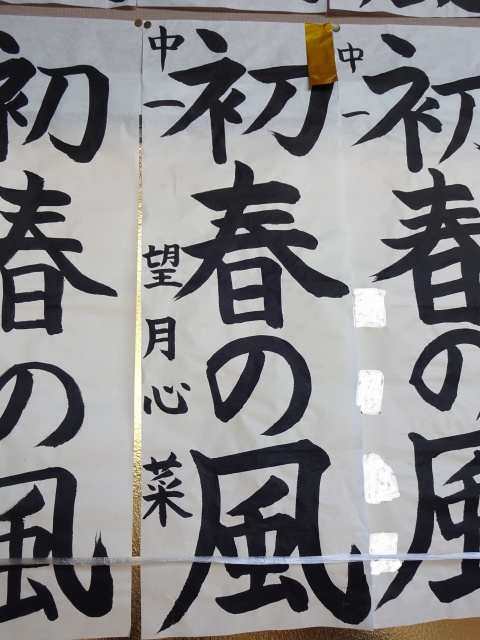 中一
初春の風
望月心菜
初春の風
中一
初春の風